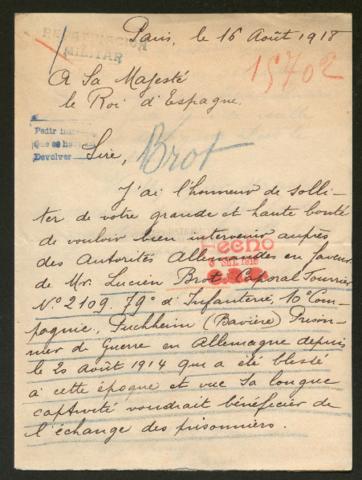 Paris, le 16 Août 1918
REPATRIACION
MILITAR
15702
A Sa Majesté
le Roi d'Espagne.
Pedir
Devolver
Sire,
Brot
J'ai l'honneur de solli-
ter de votre grande et haute bonté
de vouloir bien intervenir auprès
des Autorités Allemandes en faveur
Fecho
de Mr. Lucien Brot, Caporal Fourrier
No 2109, 79e d'Infanterie, 10e Com-
pagnie, Puchheim (Bavière) Prison-
nier de Guerre en Allemagne depuis
le 20 août 1914 qui a été blessé
à cette époque et vue sa longue
captivité voudrait bénéficier de
l'échange des prisonniers.